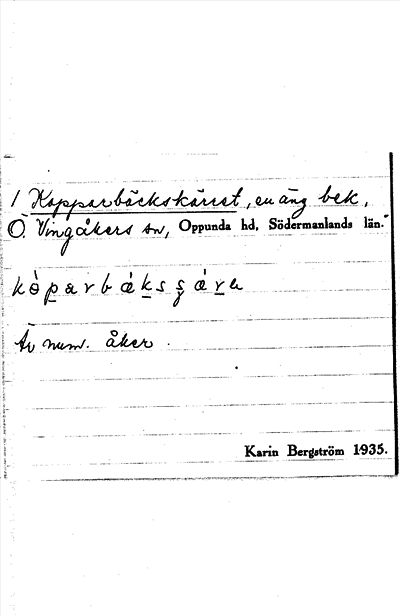 1 Kopparbäckskärret, en äng bek,
Ö. Vingåkers sn, Oppunda hd, Södermanlands län.
kòparbäksçärə
Är num. åker.
Karin Bergström 1935.